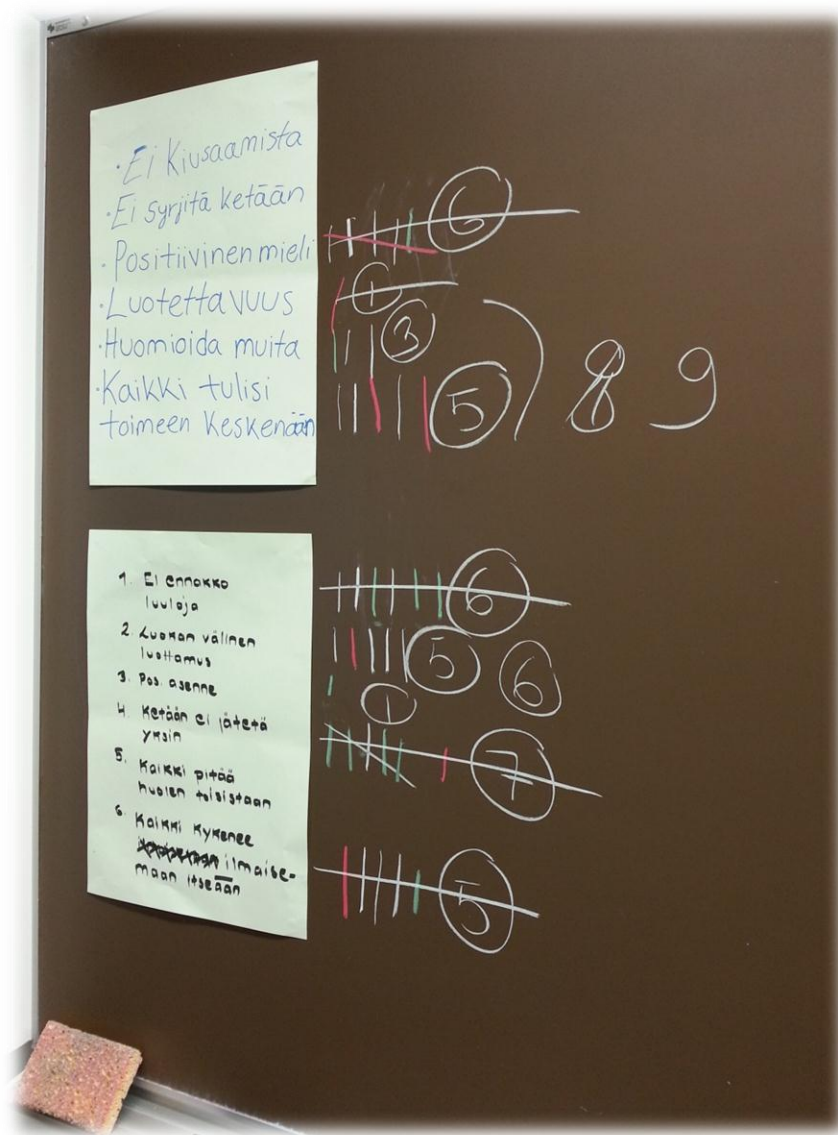 · Ei Kiusaamista
· Ei syrjitä ketään
· Positiivinen mieli
· Luotettavuus
· Huomioida muita
· Kaikki tulisi
toimeen keskenään
6
1
3
5 ) 8 9
1. Ei ennakko
luuloja
2. Luokan välinen
luottamus
3. Pos. asenne
4. Ketään ei jätetä
yksin
5. Kaikki pitää
huolen toisistaan
6. Kaikki kykenee
ilmaise-
maan itseään
6
5 6
1
7
5